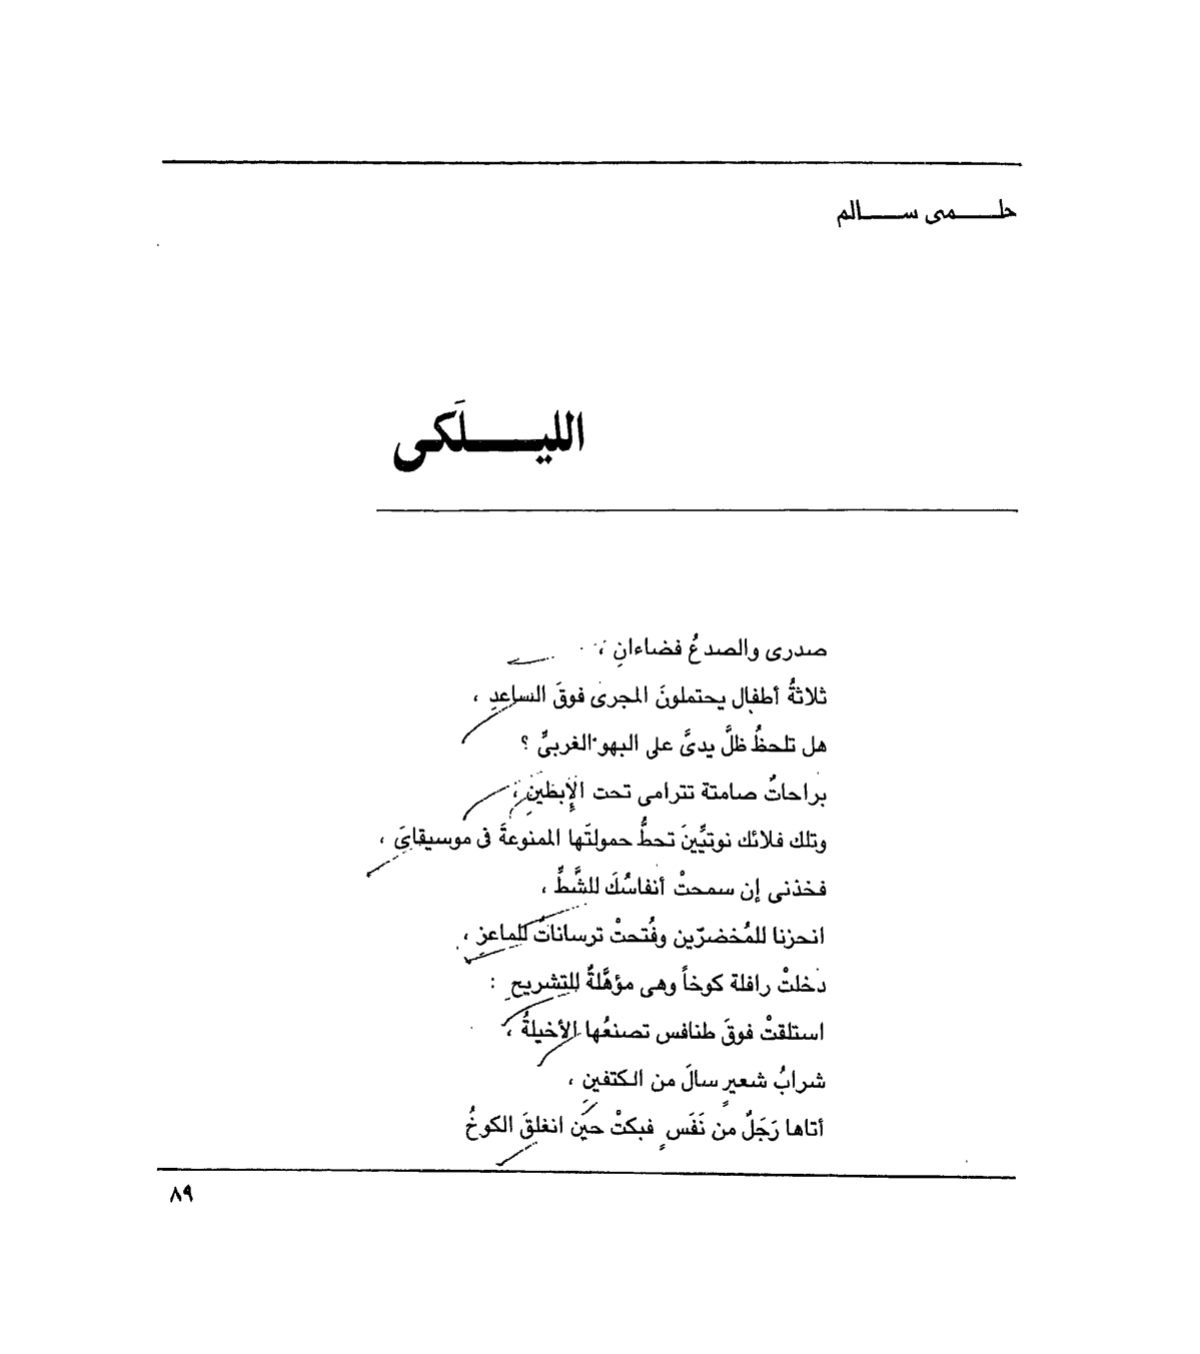 حلمى سالم
الليلَكى
صدرى والصدغُ فضاءانِ ،
ثلاثةُ أطفال يحتملونَ المجرى فوقَ الساعدِ ،
هل تلحظُ ظلَّ يدىَّ على البهو الغربىِّ ؟
براحاتٌ صامتة تترامى تحت الإبطَينِ ،
وتلك فلائك نوتيِّينَ تحطُّ حمولتَها الممنوعةَ فى موسيقاىَ ،
فخذنى إن سمحتْ أنفاسُكَ للشَّطِّ ،
انحزنا للمُخضرّين وفُتحتْ ترساناتٌ للماعزِ ،
دخلتْ رافلة كوخاً وهى مؤهَّلةٌ للتشريحِ :
استلقتْ فوقَ طنافس تصنعُها الأخيلةُ ،
شرابُ شعيرٍ سالَ من الكتفينِ ،
أتاها رَجَلٌ من نَفَسٍ فبكتْ حين انغلقَ الكوخُ
٨٩